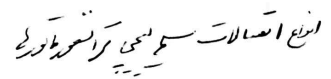 انواع اتصالات سیم پیچی ترانسفورماتورها